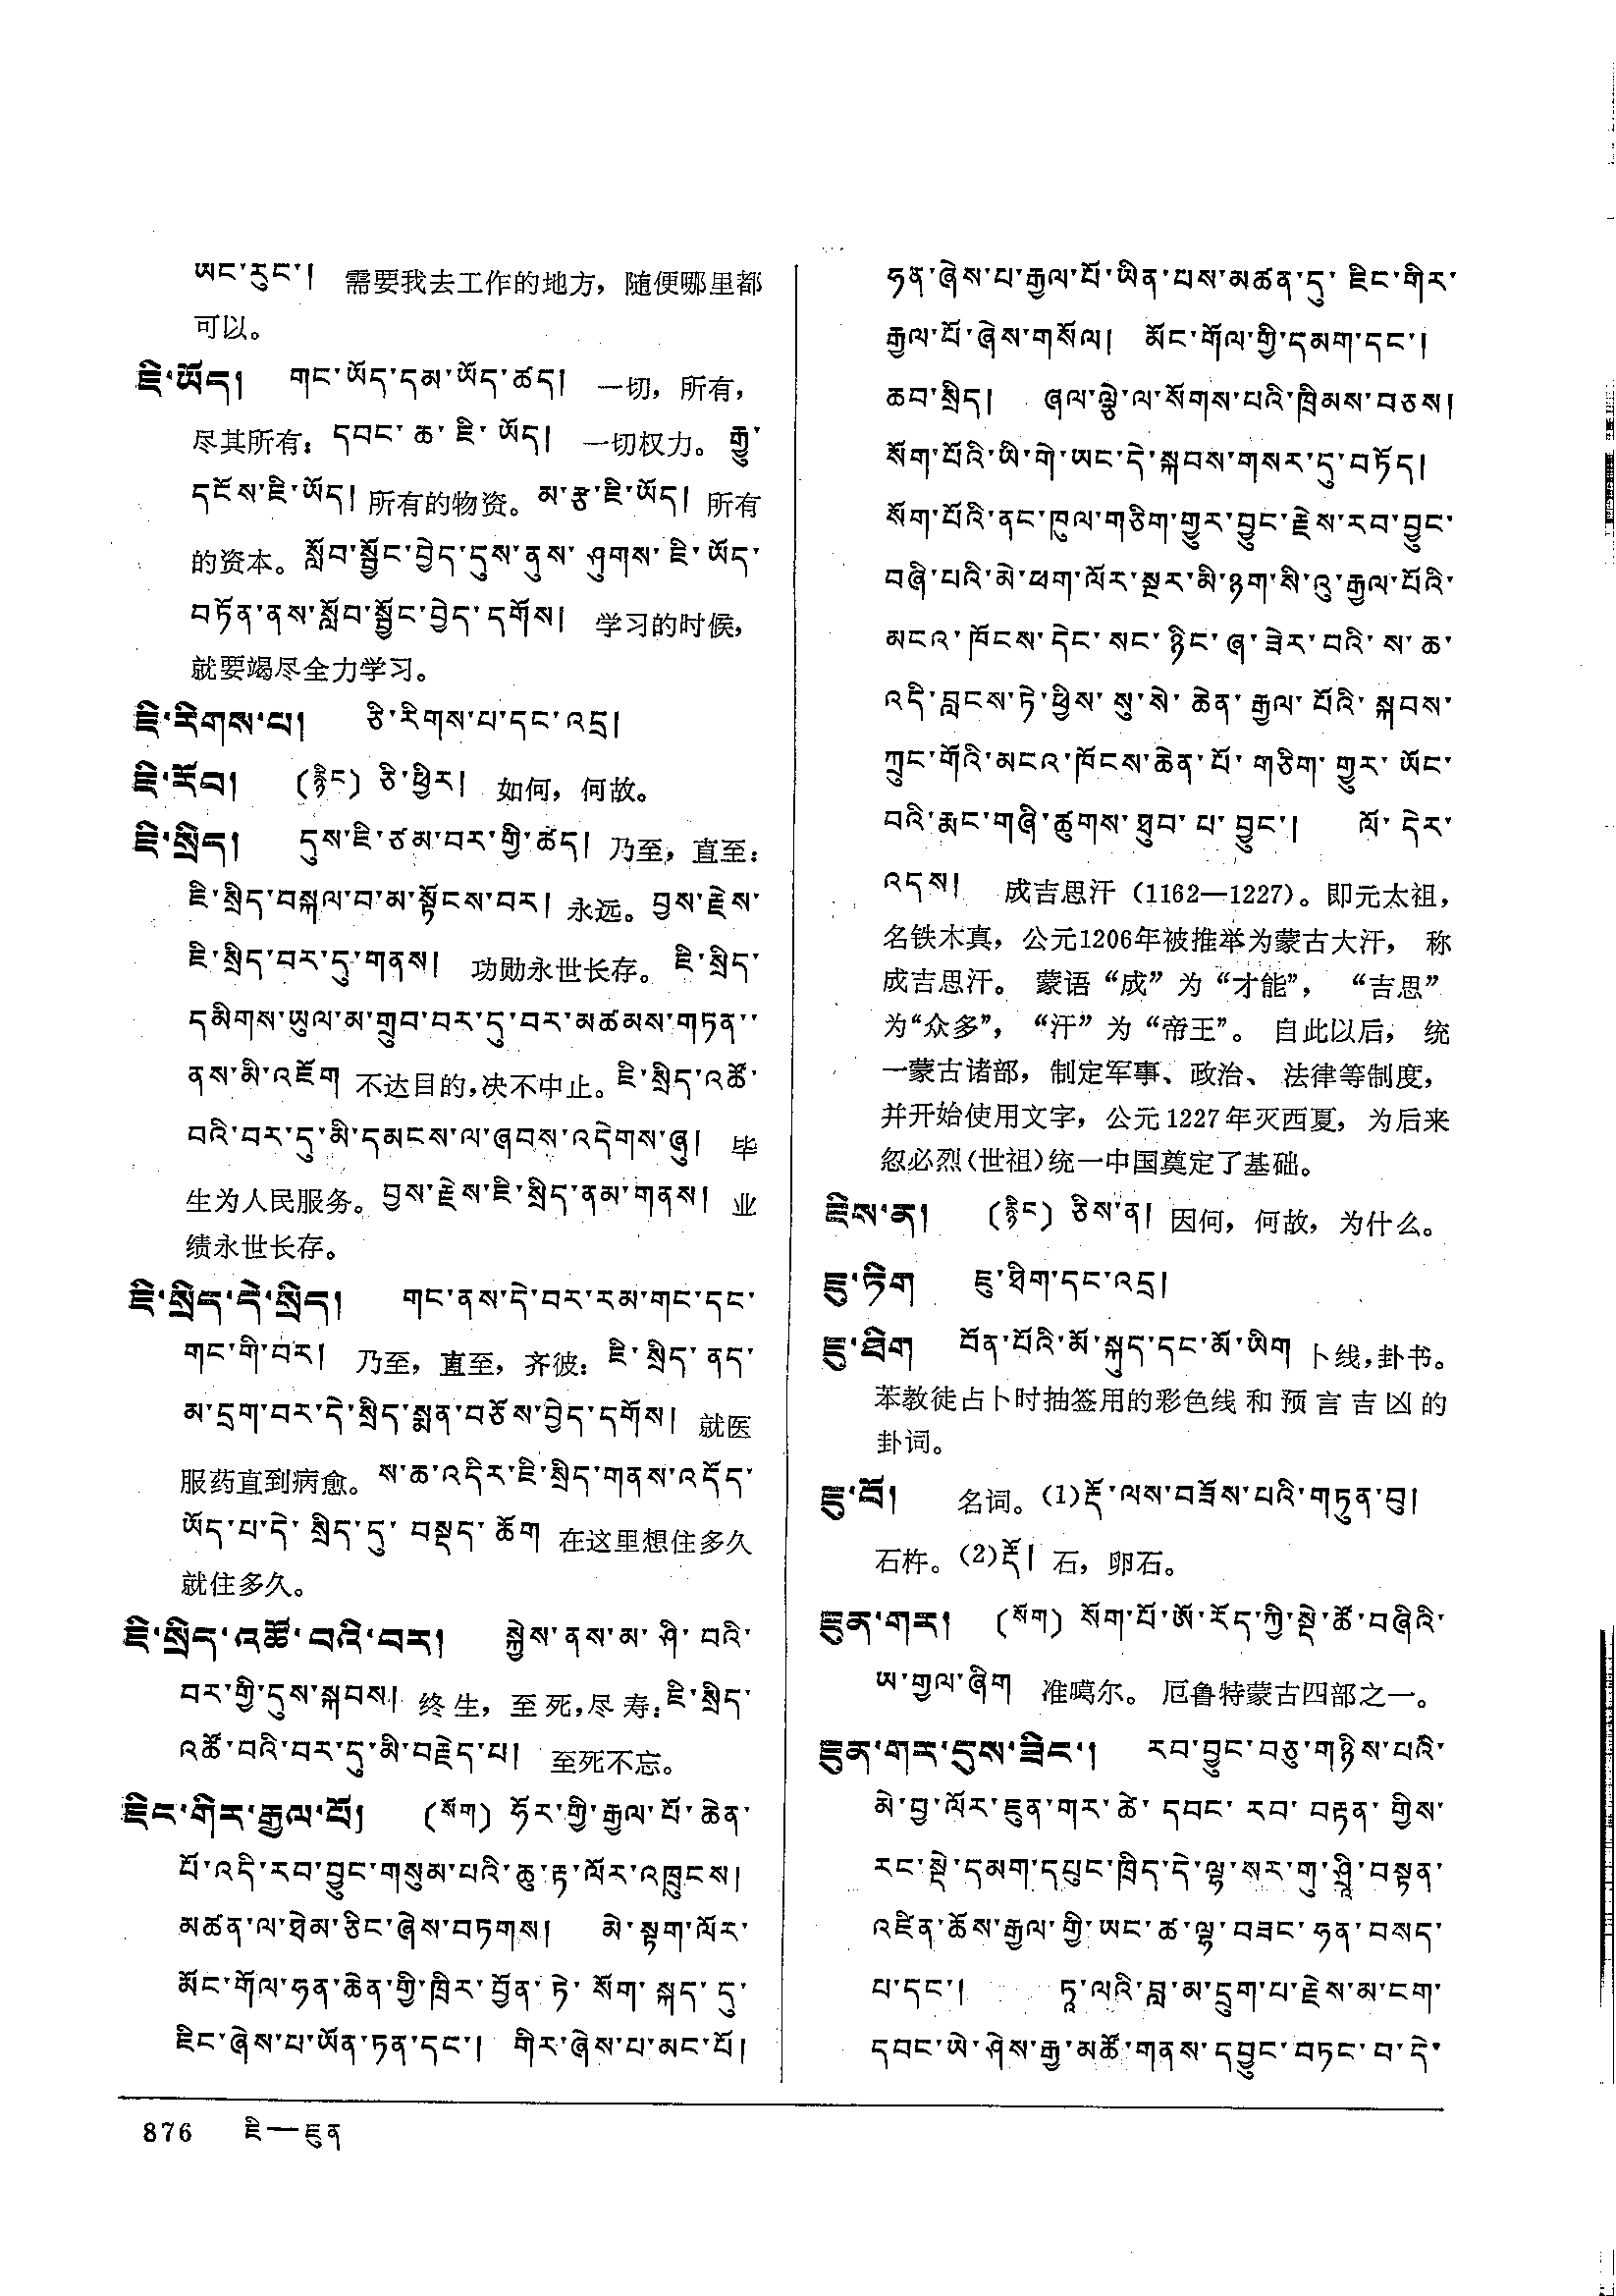 ཡང་རུང་། 需要我去工作的地方，随便哪里都
可以。
ཇི་ཡོད། གང་ཡོད་དམ་ཡོད་ཚད། 一切，所有，
尽其所有：དབང་ཆ་ཇི་ཡོད། 一切权力。རྒྱུ་
དངོས་ཇི་ཡོད། 所有的物资。མ་རྩ་ཇི་ཡོད། 所有
的资本。སློབ་སྦྱོང་བྱེད་དུས་ནུས་ཤུགས་ཇི་ཡོད་
བཏོན་ནས་སློབ་སྦྱོང་བྱེད་དགོས། 学习的时候，
就要竭尽全力学习。
ཇི་རིགས་པ། ཅི་རིགས་པ་དང་འདྲ།
ཇི་རོབ། (རྙིང) ཅི་ཕྱིར། 如何，何故。
ཇི་སྲིད། དུས་ཇི་ཙམ་བར་གྱི་ཚད། 乃至，直至：
ཇི་སྲིད་བསྐལ་བ་མ་སྟོངས་བར། 永远。བྱས་རྗེས་
ཇི་སྲིད་བར་དུ་གནས། 功勋永世长存。ཇི་སྲིད་
དམིགས་ཡུལ་མ་གྲུབ་བར་དུ་བར་མཚམས་གཏན་་
ནས་མི་འཇོག 不达目的，决不中止。ཇི་སྲིད་འཚོ་
བའི་བར་དུ་མི་དམངས་ལ་ཞབས་འདེགས་ཞུ། 毕
生为人民服务。བྱས་རྗེས་ཇི་སྲིད་ནམ་གནས། 业
绩永世长存。
ཇི་སྲིད་དེ་སྲིད། གང་ནས་དེ་བར་རམ་གང་དང་
གང་གི་བར། 乃至，直至，齐彼：ཇི་སྲིད་ནད་
མ་དྲག་བར་དེ་སྲིད་སྨན་བཅོས་བྱེད་དགོས། 就医
服药直到病愈。ས་ཆ་འདིར་ཇི་སྲིད་གནས་འདོད་
ཡོད་པ་དེ་སྲིད་དུ་བསྡད་ཆོག 在这里想住多久
就住多久。
ཇི་སྲིད་འཚོ་བའི་བར། སྐྱེས་ནས་མ་ཤི་བའི་
བར་གྱི་དུས་སྐབས། 终生，至死，尽寿：ཇི་སྲིད་
འཚོ་བའི་བར་དུ་མི་བརྗེད་པ། 至死不忘。
ཇིང་གིར་རྒྱལ་པོ། (སོག) ཧོར་གྱི་རྒྱལ་པོ་ཆེན་
པོ་འདི་རབ་བྱུང་གསུམ་པའི་ཆུ་རྟ་ལོར་འཁྲུངས།
མཚན་ལ་ཐེམ་ཅིང་ཞེས་བཏགས། མེ་སྟག་ལོར་
མོང་གོལ་ཧན་ཆེན་གྱི་ཁྲིར་བྱོན་ཏེ་སོག་སྐད་དུ་
ཇིང་ཞེས་པ་ཡོན་ཏན་དང་། གིར་ཞེས་པ་མང་པོ།
ཧན་ཞེས་པ་རྒྱལ་པོ་ཡིན་པས་མཚན་དུ་ཇིང་གིར་
རྒྱལ་པོ་ཞེས་གསོལ། མོང་གོལ་གྱི་དམག་དང་།
ཆབ་སྲིད། ཞལ་ལྕེ་ལ་སོགས་པའི་ཁྲིམས་བཅས།
སོག་པོའི་ཡི་གེ་ཡང་དེ་སྐབས་གསར་དུ་བཏོད།
སོག་པོའི་ནང་ཁུལ་གཅིག་གྱུར་བྱུང་རྗེས་རབ་བྱུང་
བཞི་པའི་མེ་ཕག་ལོར་སྔར་མི་ཉག་སི་འུ་རྒྱལ་པོའི་
མངའ་ཁོངས་དེང་སང་ཉིང་ཞ་ཟེར་བའི་ས་ཆ་
འདི་བླངས་ཏེ་ཕྱིས་སུ་སེ་ཆེན་རྒྱལ་པོའི་སྐབས་
ཀྲུང་གོའི་མངའ་ཁོངས་ཆེན་པོ་གཅིག་གྱུར་ཡོང་
བའི་རྨང་གཞི་ཚུགས་ཐུབ་པ་བྱུང་། ལོ་དེར་
འདས། 成吉思汗（1162—1227）。即元太祖，
名铁木真，公元1206年被推举为蒙古大汗，称
成吉思汗。蒙语“成”为“才能”，“吉思”
为“众多”，“汗”为“帝王”。自此以后，统
一蒙古诸部，制定军事、政治、法律等制度，
并开始使用文字，公元1227年灭西夏，为后来
忽必烈（世祖）统一中国奠定了基础。
ཇིས་ན། (རྙིང) ཅིས་ན། 因何，何故，为什么。
ཇུ་ཏིག ཇུ་ཐིག་དང་འདྲ།
ཇུ་ཐིག བོན་པོའི་མོ་སྐུད་དང་མོ་ཡིག 卜线，卦书。
苯教徒占卜时抽签用的彩色线和预言吉凶的
卦词。
ཇུ་བོ། 名词。(1)རྡོ་ལས་བཟོས་པའི་གཏུན་བུ།
石杵。(2)རྡོ། 石，卵石。
ཇུན་གར། (སོག) སོག་པོ་ཨོ་རོད་ཀྱི་སྡེ་ཚོ་བཞིའི་
ཡ་གྱལ་ཞིག 准噶尔。厄鲁特蒙古四部之一。
ཇུན་གར་དུས་ཟིང་། རབ་བྱུང་བཅུ་གཉིས་པའི་
མེ་བྱ་ལོར་ཇུན་གར་ཚེ་དབང་རབ་བརྟན་གྱིས་
རང་སྡེ་དམག་དཔུང་ཁྲིད་དེ་ལྷ་སར་གུ་ཤྲཱི་བསྟན་
འཛིན་ཆོས་རྒྱལ་གྱི་ཡང་ཚ་ལྷ་བཟང་ཧན་བསད་
པ་དང་། ཏཱ་ལའི་བླ་མ་དྲུག་པ་རྗེས་མ་ངག་
དབང་ཡེ་ཤེས་རྒྱ་མཚོ་གནས་དབྱུང་བཏང་བ་དེ་
876 ཇི—ཇུན